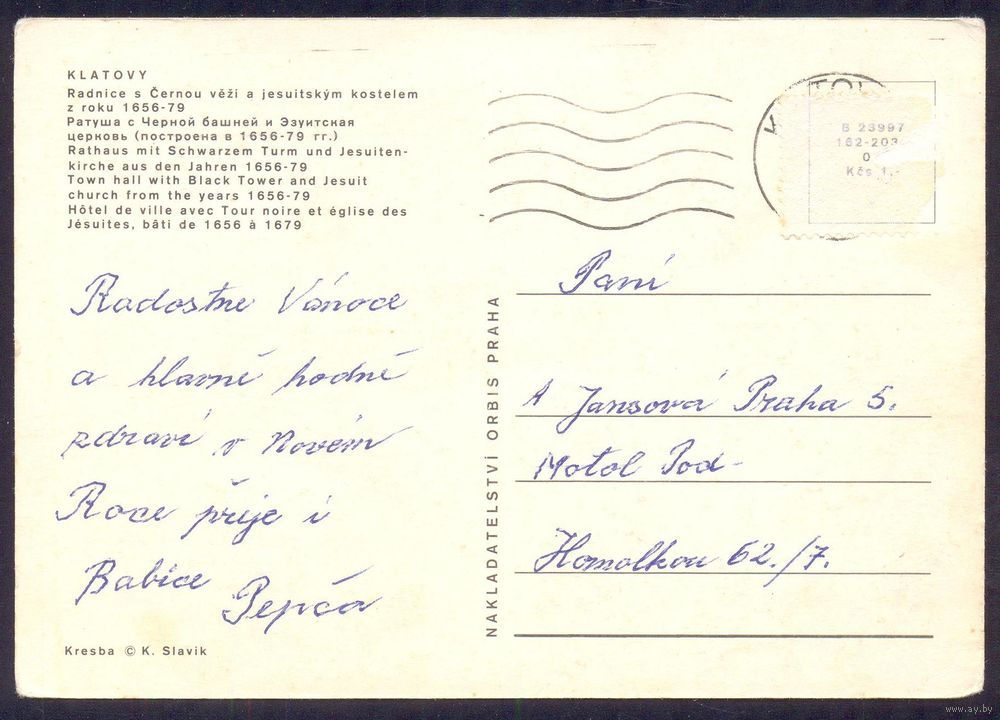 KLATOVY
Radnice s Černou věží a jesuitským kostelem
z roku 1656-79
Ратуша с Черной башней и Эзуитская
церковь (построена в 1656-79 гг.)
Rathaus mit Schwarzem Turm und Jesuiten-
kirche aus den Jahren 1656-79
Town hall with Black Tower and Jesuit
church from the years 1656-79
Hôtel de ville avec Tour noire et église des
Jésuites, bâti de 1656 à 1679
B 23997
162-203
0
Kčs 1,-
Radostne Vánoce
a hlavně hodně
zdraví v Novém
Roce přeje i
Babice
Pepča
Kresba © K. Slavik
NAKLADATELSTVÍ ORBIS PRAHA
Paní
A Jansová Praha 5.
Motol Pod-
Homolkou 62./7.
www.ay.by